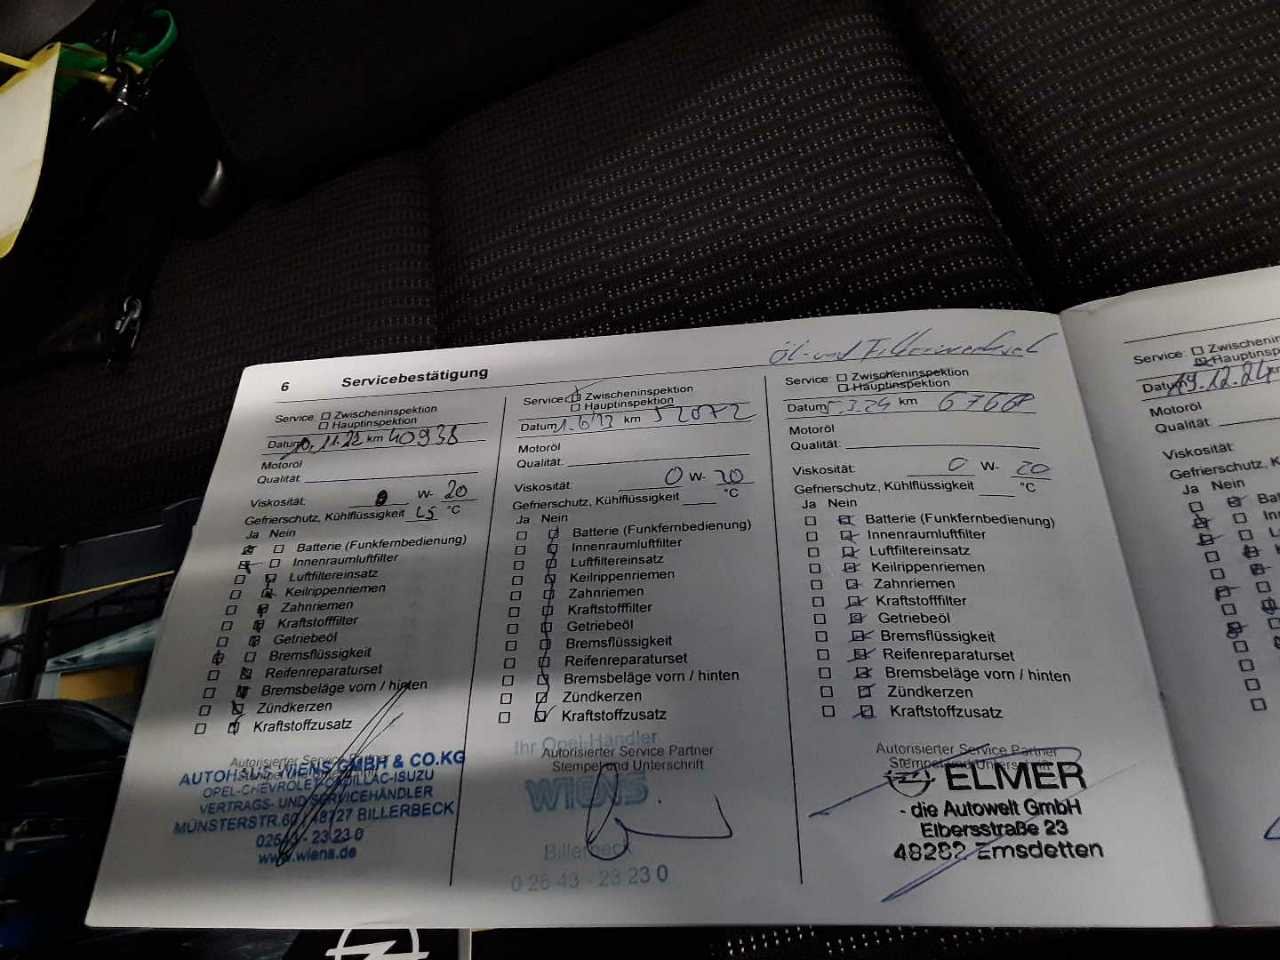 6 Servicebestätigung
Service: Zwischeninspektion
Hauptinspektion
Datum 11.22 km 40938
Motoröl
Qualität:
Viskosität: 0 W- 20
Gefrierschutz, Kühlflüssigkeit °C
Ja Nein
Batterie (Funkfernbedienung)
Innenraumluftfilter
Luftfiltereinsatz
Keilrippenriemen
Zahnriemen
Kraftstofffilter
Getriebeöl
Bremsflüssigkeit
Reifenreparaturset
Bremsbeläge vorn / hinten
Zündkerzen
Kraftstoffzusatz
Autorisierter Service Partner
AUTOHAUS WIENS GMBH & CO.KG
OPEL-CHEVROLET-CADILLAC-ISUZU
VERTRAGS- UND SERVICEHÄNDLER
MÜNSTERSTR.60 / 48727 BILLERBECK
02543 - 23 23 0
www.wiens.de
Service: Zwischeninspektion
Hauptinspektion
Datum km 52072
Motoröl
Qualität:
Viskosität: 0 W- 20
Gefrierschutz, Kühlflüssigkeit °C
Ja Nein
Batterie (Funkfernbedienung)
Innenraumluftfilter
Luftfiltereinsatz
Keilrippenriemen
Zahnriemen
Kraftstofffilter
Getriebeöl
Bremsflüssigkeit
Reifenreparaturset
Bremsbeläge vorn / hinten
Zündkerzen
Kraftstoffzusatz
Ihr Opel Händler
Autorisierter Service Partner
Stempel und Unterschrift
WIENS
Billerbeck
0 25 43 - 23 23 0
Öl- und Filterwechsel
Service: Zwischeninspektion
Hauptinspektion
Datum 3.24 km
Motoröl
Qualität:
Viskosität: 0 W- 20
Gefrierschutz, Kühlflüssigkeit °C
Ja Nein
Batterie (Funkfernbedienung)
Innenraumluftfilter
Luftfiltereinsatz
Keilrippenriemen
Zahnriemen
Kraftstofffilter
Getriebeöl
Bremsflüssigkeit
Reifenreparaturset
Bremsbeläge vorn / hinten
Zündkerzen
Kraftstoffzusatz
Autorisierter Service Partner
Stempel und Unterschrift
ELMER
- die Autowelt GmbH
Elbersstraße 23
48282 Emsdetten
Service:
Datum 19.12.24
Motoröl
Qualität:
Viskosität:
Gefrierschutz,
Ja Nein